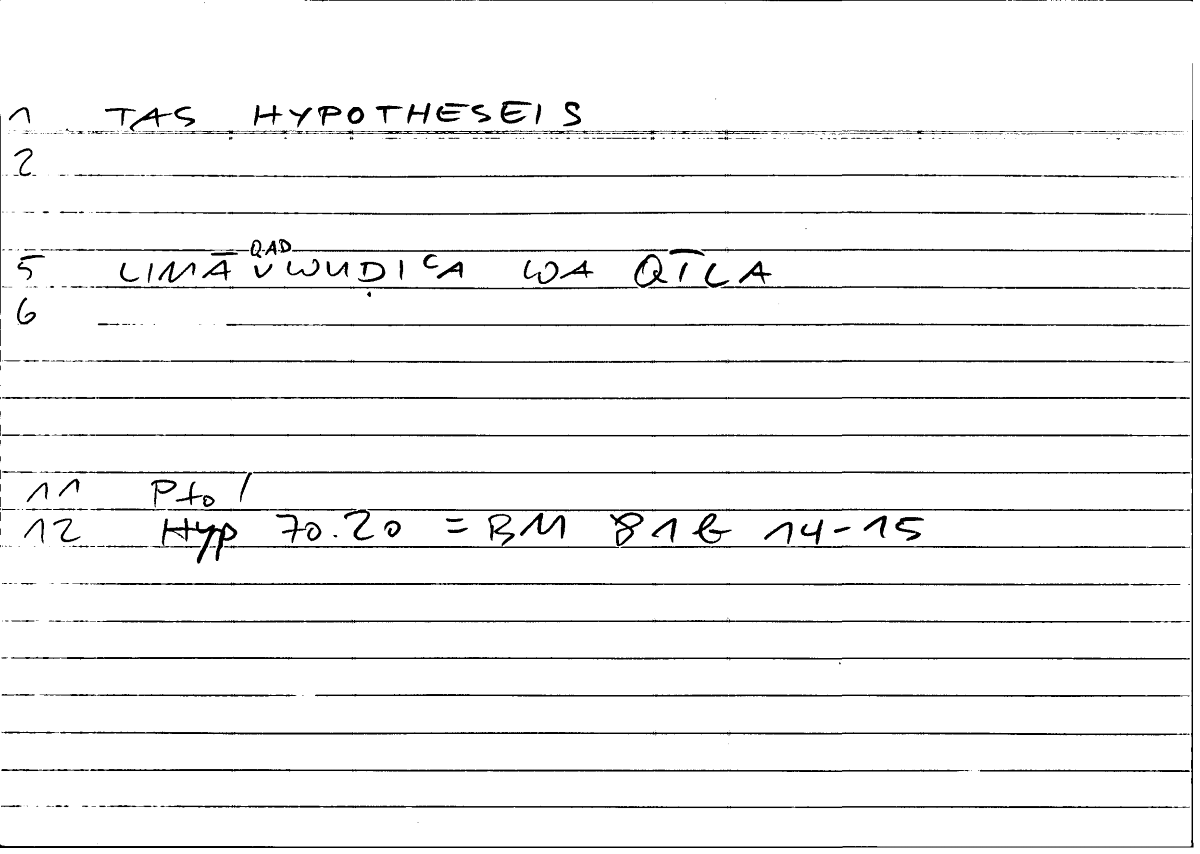 1 TAS HYPOTHESEIS
2
5 LIMĀ QAD WUḌIʿA WA QĪLA
6
11 Ptol
12 Hyp 70.20 = BM 81b 14-15